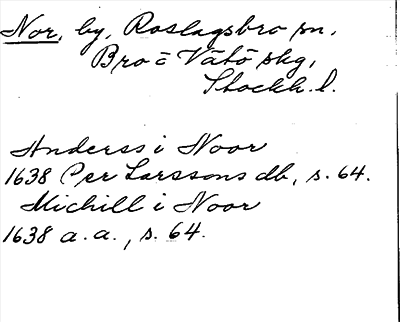 Nor, by, Roslagsbro sn,
Bro o Vätö skg,
Stockh. l.
Anderss i Noor
1638 Per Larssons db, s. 64.
Michill i Noor
1638 a. a., s. 64.